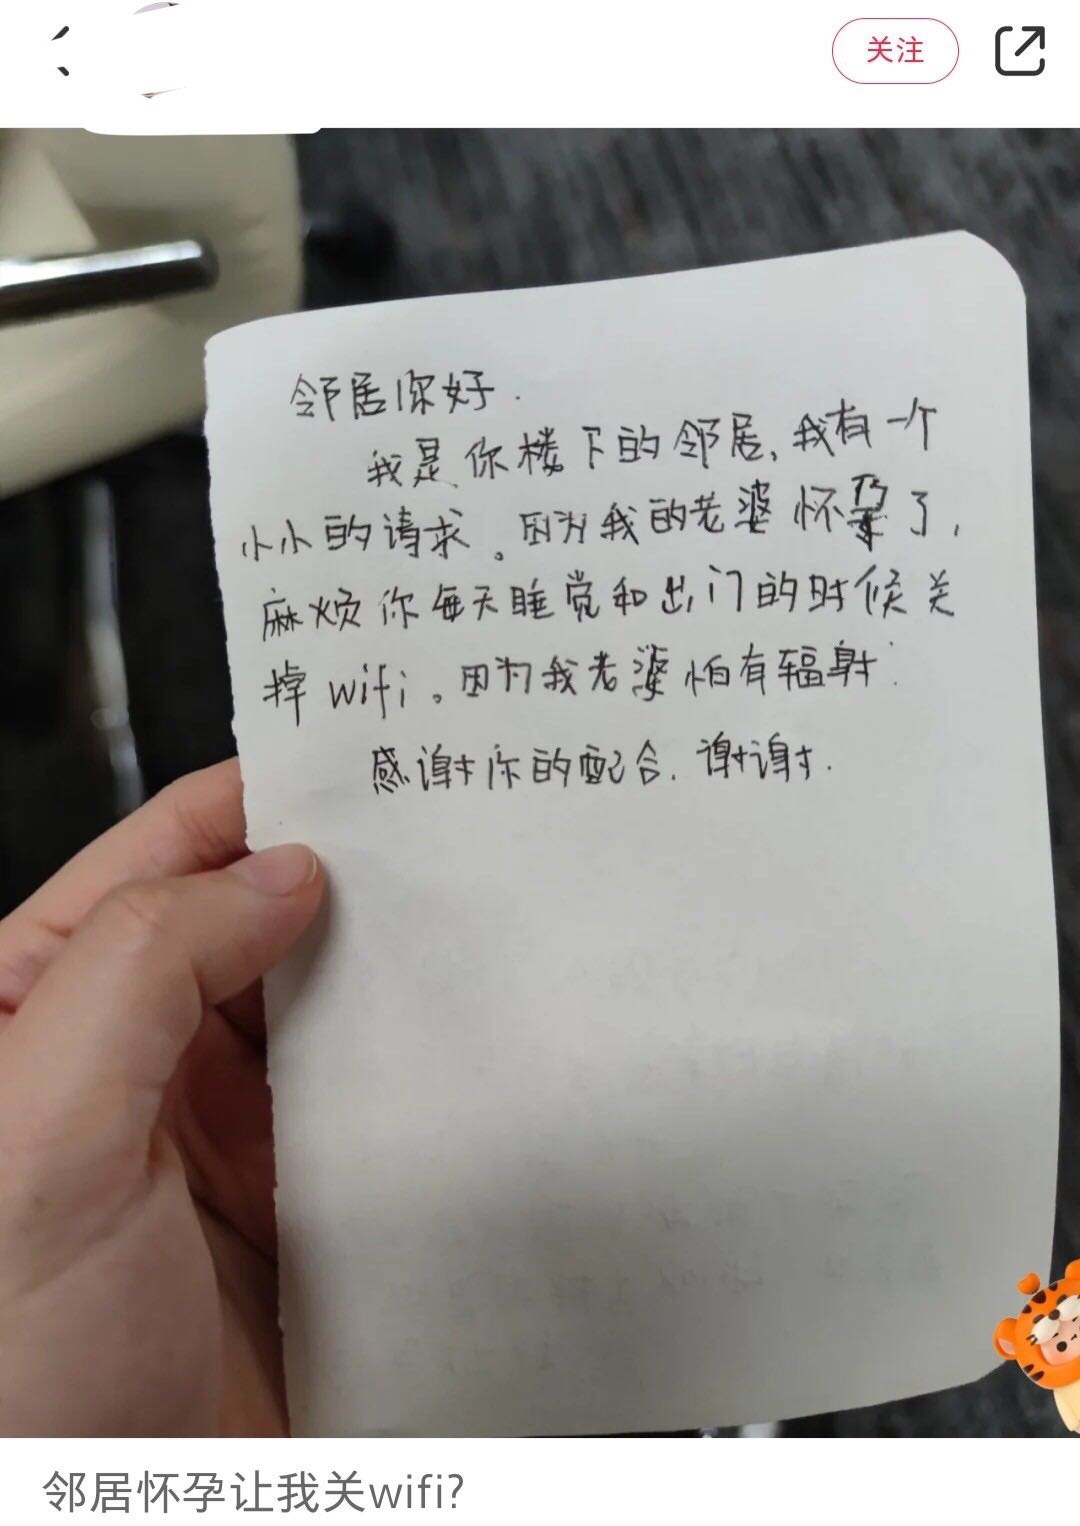 关注
邻居你好.
我是你楼下的邻居,我有一个
小小的请求。因为我的老婆怀孕了,
麻烦你每天睡觉和出门的时候关
掉wifi。因为我老婆怕有辐射.
感谢你的配合.谢谢.
邻居怀孕让我关wifi?